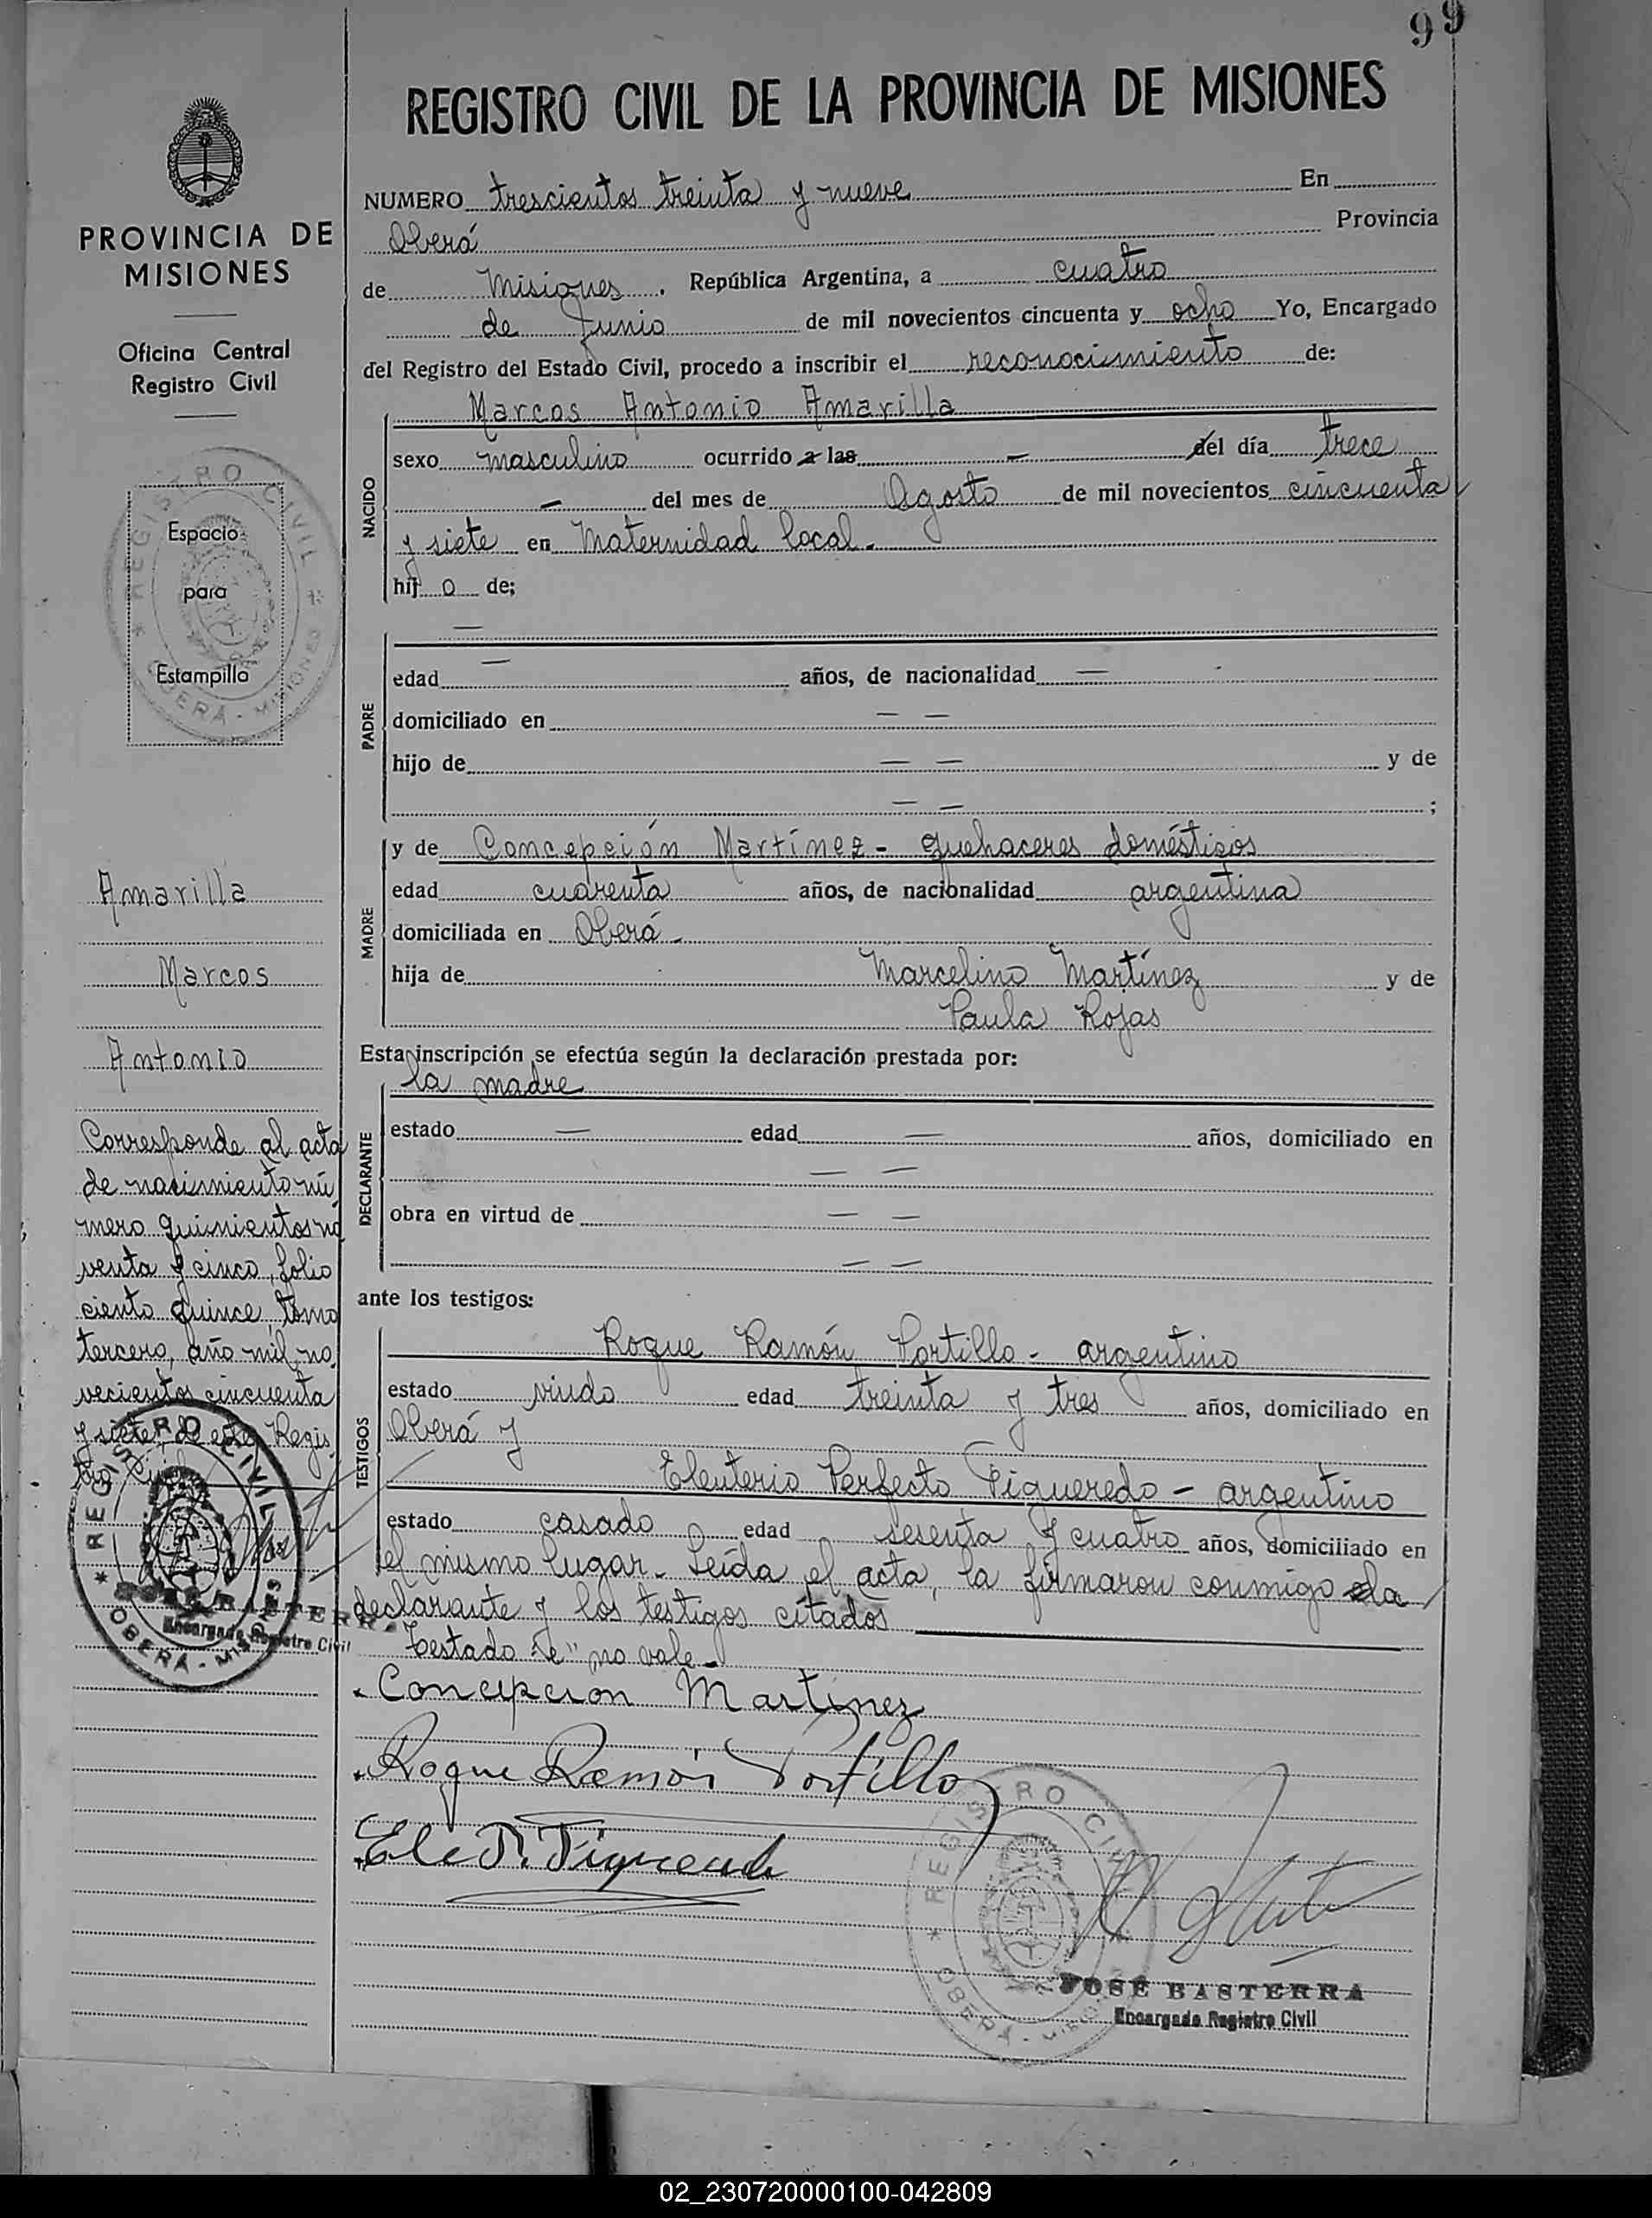 99
REGISTRO CIVIL DE LA PROVINCIA DE MISIONES
PROVINCIA DE
MISIONES
Oficina Central
Registro Civil
REGISTRO CIVIL
Espacio
para
Estampilla
OBERÁ - MISIONES
NUMERO trescientos treinta y nueve En
Oberá Provincia
de Misiones, República Argentina, a cuatro
de Junio de mil novecientos cincuenta y ocho Yo, Encargado
del Registro del Estado Civil, procedo a inscribir el reconocimiento de:
Marcos Antonio Amarilla
NACIDO
sexo masculino ocurrido a las — del día trece
— del mes de Agosto de mil novecientos cincuenta
y siete en Maternidad local.
hijo de;
—
PADRE
edad — años, de nacionalidad —
domiciliado en — —
hijo de — — y de
— — ;
MADRE
y de Concepción Martínez - quehaceres domésticos
edad cuarenta años, de nacionalidad argentina
domiciliada en Oberá -
hija de Marcelino Martínez y de
Paula Rojas
Esta inscripción se efectúa según la declaración prestada por:
la madre
DECLARANTE
estado — edad — años, domiciliado en
— —
obra en virtud de — —
— —
ante los testigos:
TESTIGOS
Roque Ramón Portillo - argentino
estado viudo edad treinta y tres años, domiciliado en
Oberá y
Eleuterio Perfecto Figueredo - argentino
estado casado edad sesenta y cuatro años, domiciliado en
el mismo lugar. Leída el acta, la firmaron conmigo la
declarante y los testigos citados
Testado "e" no vale.
Concepcion Martinez
Roque Ramón Portillo
Ele P. Figueredo
REGISTRO CIVIL
OBERÁ - MISIONES
JOSÉ BASTERRA
Encargado Registro Civil
Amarilla
Marcos
Antonio
Corresponde al acta
de nacimiento nú
mero quinientos no
venta y cinco, folio
ciento quince, tomo
tercero, año mil no
vecientos cincuenta
y siete, de este Regis
tro Civil
REGISTRO CIVIL
OBERÁ - MISIONES
JOSÉ BASTERRA
Encargado Registro Civil
02_230720000100-042809